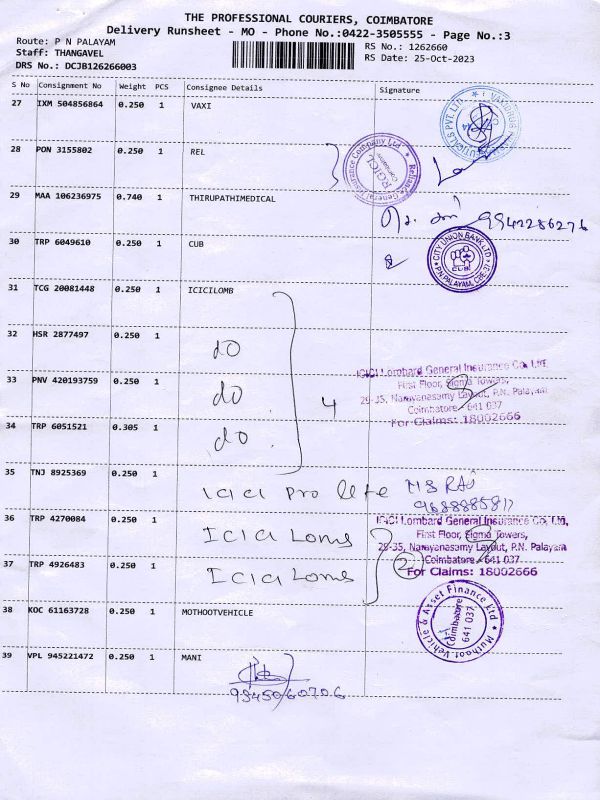 THE PROFESSIONAL COURIERS, COIMBATORE
Delivery Runsheet - MO - Phone No.:0422-3505555 - Page No.:3
Route: P N PALAYAM
RS No.: 1262660
Staff: THANGAVEL
RS Date: 25-Oct-2023
DRS No.: DCJB126266003
S No Consignment No Weight PCS Consignee Details Signature
27 IXM 504856864 0.250 1 VAXI
28 PON 3155802 0.250 1 REL
Reliance General Insurance Company Ltd
RGICL
29 MAA 106236975 0.740 1 THIRUPATHIMEDICAL
9942286276
30 TRP 6049610 0.250 1 CUB
CITY UNION BANK LTD.
CUB
P.N.PALAYAM, CBE-37
31 TCG 20081448 0.250 1 ICICILOMB
32 HSR 2877497 0.250 1 do
33 PNV 420193759 0.250 1 do 4
ICICI Lombard General Insurance Co. Ltd.
First Floor, Sigma Towers,
29-35, Narayanasamy Layout, P.N. Palayam
Coimbatore - 641 037
For Claims: 18002666
34 TRP 6051521 0.305 1 do
35 TNJ 8925369 0.250 1 ICICI Pro life
36 TRP 4270084 0.250 1 ICICI Lomb
ICICI Lombard General Insurance Co, Ltd,
First Floor, Sigma Towers,
29-35, Narayanasamy Layout, P.N. Palayam
Coimbatore - 641 037
For Claims: 18002666
37 TRP 4926483 0.250 1 ICICI Lomb 2
38 KOC 61163728 0.250 1 MOTHOOTVEHICLE
Muthoot Vehicle & Asset Finance Ltd
Coimbatore
641 037
39 VPL 945221472 0.250 1 MANI
9345060706